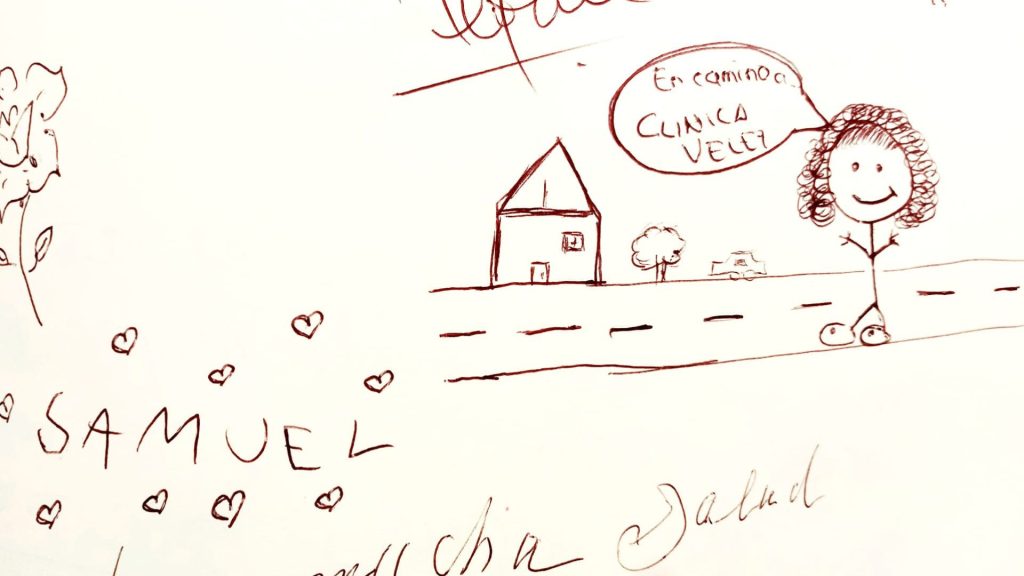 En camino a
CLINICA
VELEZ
SAMUEL
mucha Salud